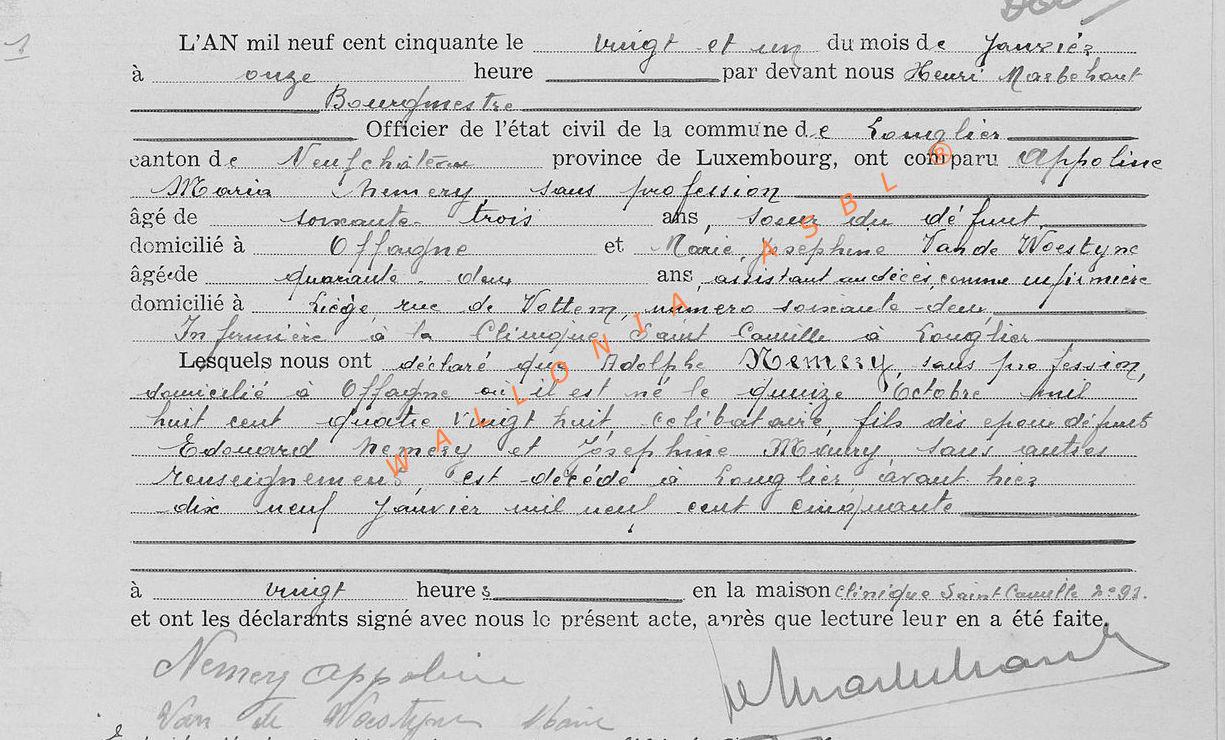 1
L'AN mil neuf cent cinquante le vingt et un du mois de Janvier
à onze heure par devant nous Henri Marbehant
Bourgmestre
Officier de l'état civil de la commune de Longlier
canton de Neufchâteau province de Luxembourg, ont comparu Appoline
Maria Nemery, sans profession
âgé de soixante-trois ans, soeur du défunt,
domicilié à Offagne et Marie, Josephine Van de Woestyne
âgée de quarante-deux ans, assistant au décès, comme infirmière
domicilié à Liège, rue de Vottem, numero soixante-deux,
Infirmière à la Clinique Saint Camille à Longlier
Lesquels nous ont déclaré que Adolphe Nemery, sans profession,
domicilié à Offagne où il est né le quinze Octobre mil
huit cent quatre vingt huit, célibataire, fils des epoux défunts
Edouard Nemery et Josephine Maury, sans autres
renseignemens, est décédé à Longlier avant-hier
dix neuf Janvier mil neuf cent cinquante
à vingt heures en la maison Clinique Saint Camille n° 91.
et ont les déclarants signé avec nous le présent acte, après que lecture leur en a été faite.
Nemery Appoline
Van de Woestyne Marie
WALLONIA ASBL ®